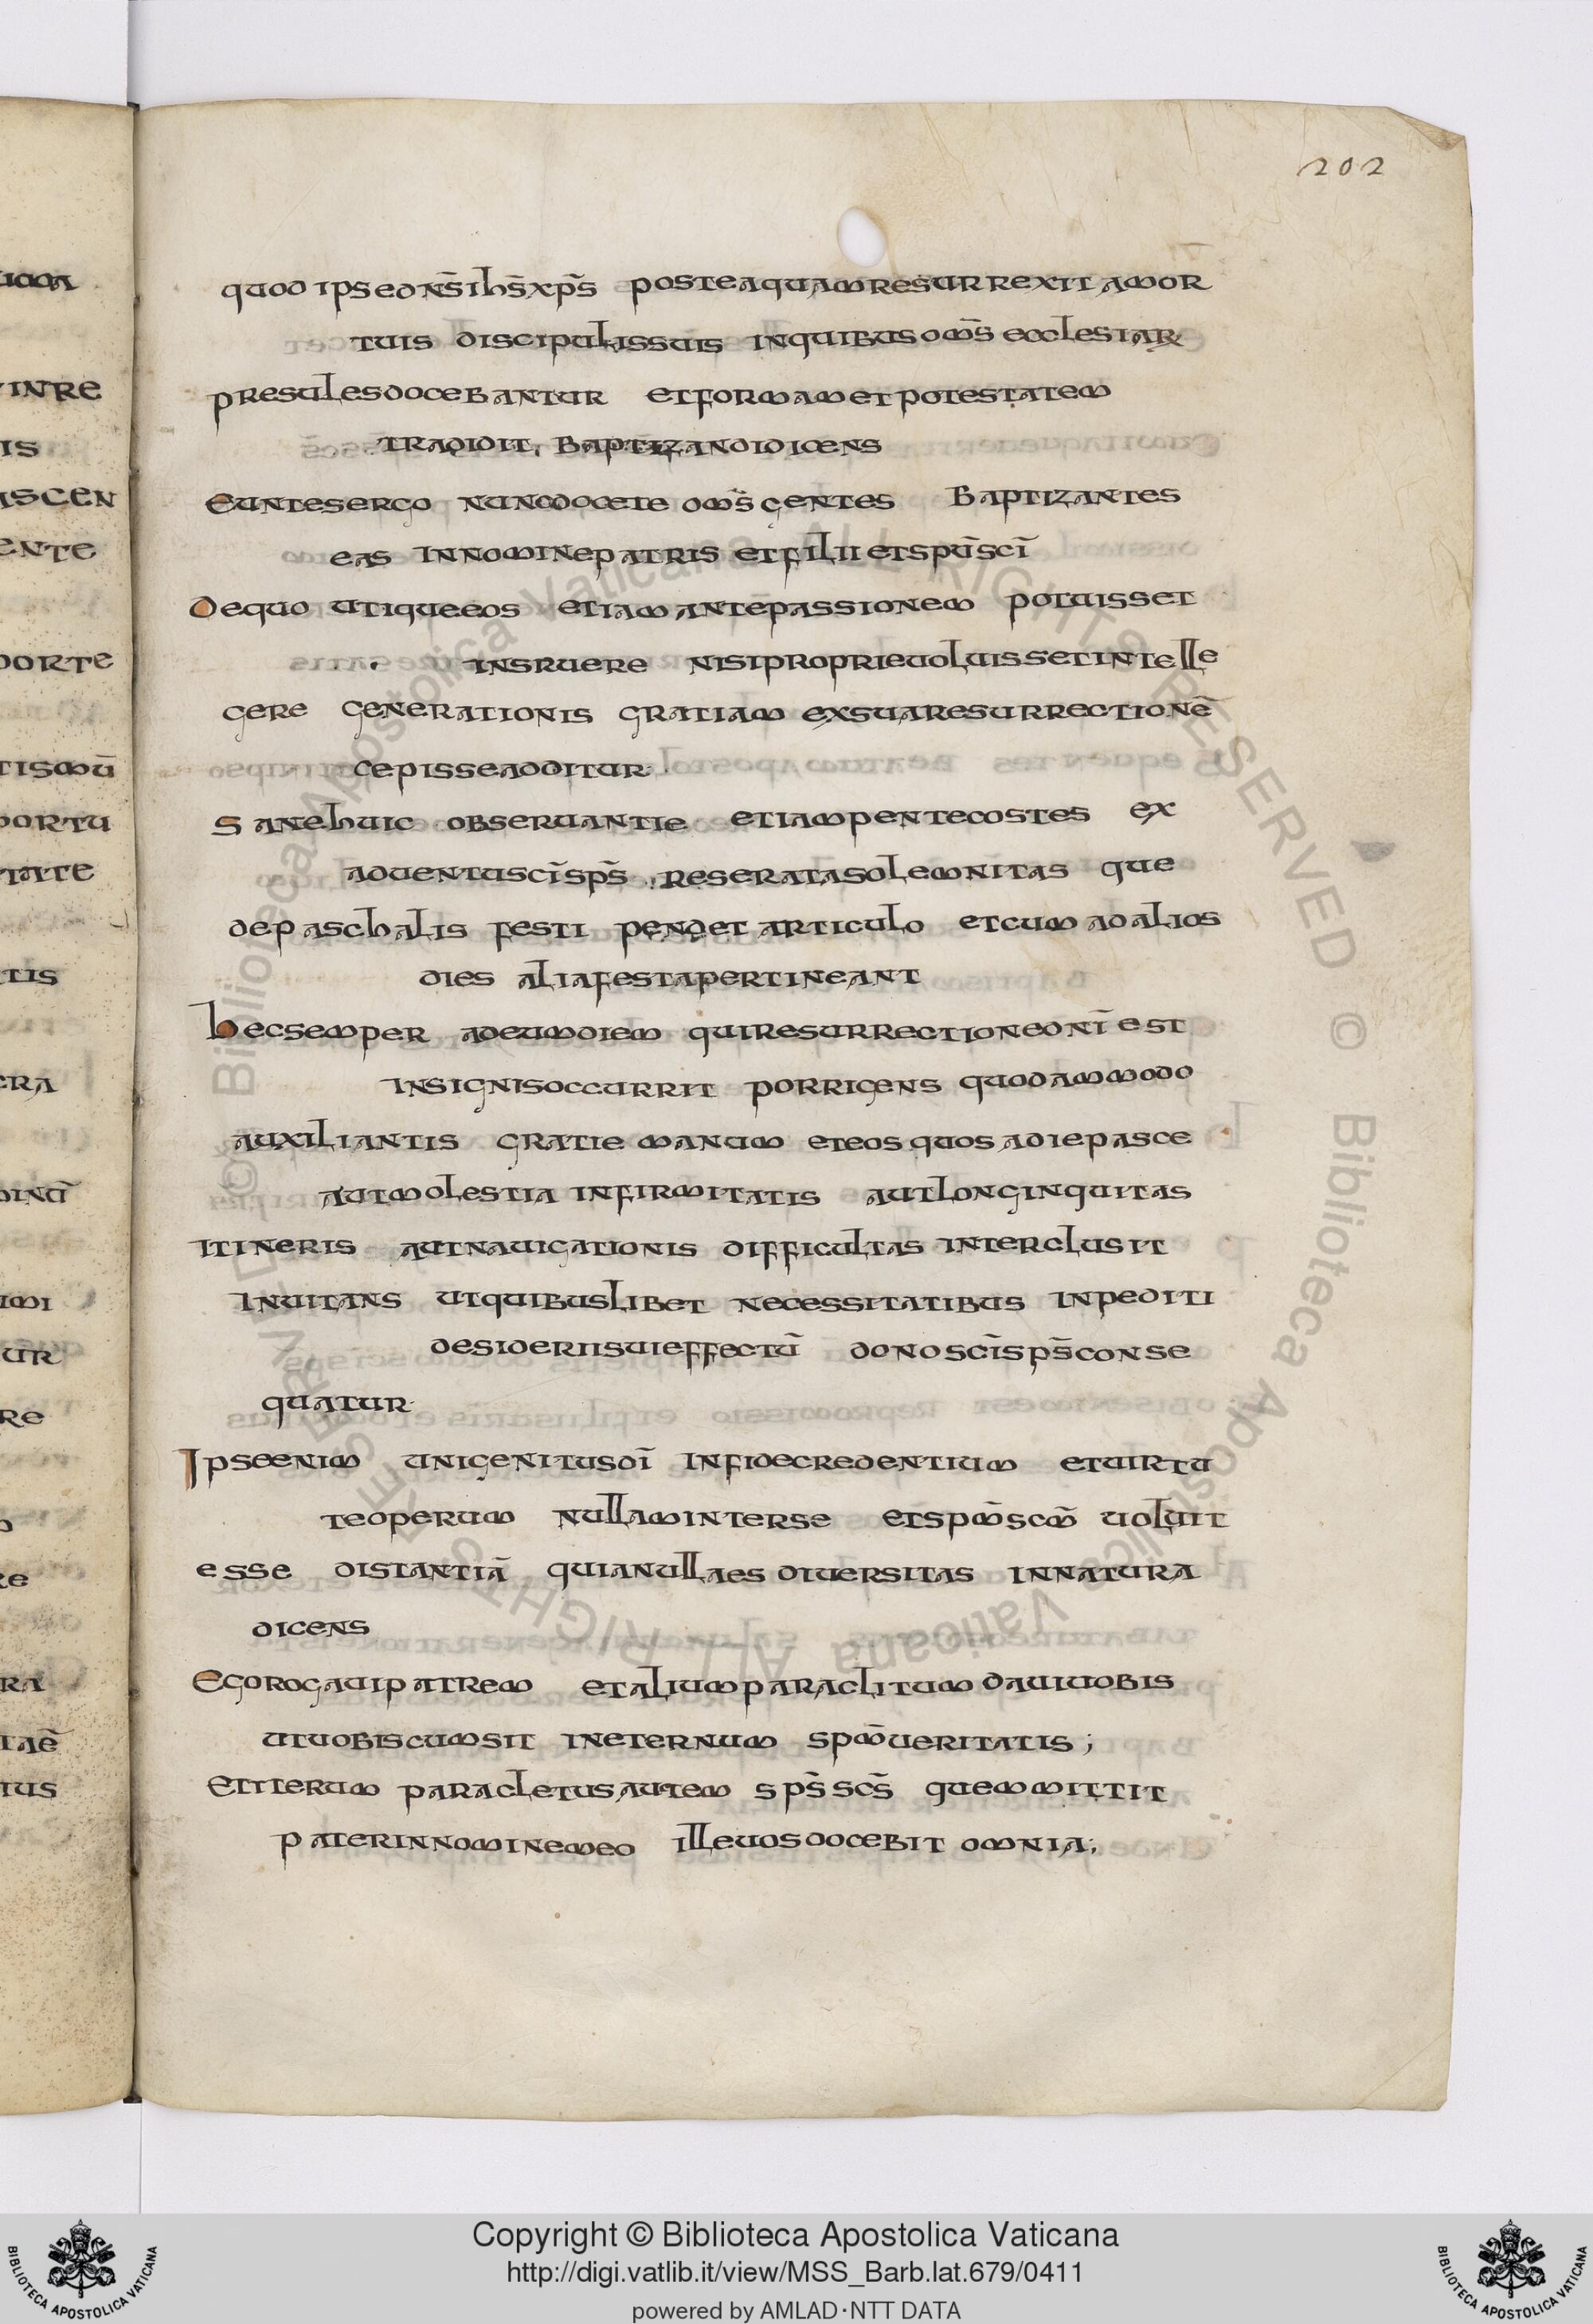 202
quod ipse dn̄s ih̄s xp̄s posteaquam resurrexit a mor
tuis discipulis suis in quibus om̄s ecclesiarꝝ
presules docebantur et formam et potestatem
tradidit, baptizandi dicens
Euntes ergo nunc docete om̄s gentes baptizantes
eas in nomine patris et filii et sp̄u sc̄i
De quo utique eos etiam ante passionem potuisset
insruere nisi proprie voluisset intelle
gere generationis gratiam ex sua resurrectionē
cepisse additur·
Sane huic observantie etiam pentecostes ex
adventu sc̄i sp̄s reserata solemnitas que
de paschalis festi pendet articulo et cum ad alios
dies alia festa pertineant
hec semper ad eum diem qui resurrectione dn̄i est
insignis occurrit porrigens quodammodo
auxiliantis gratie manum et eos quos a die pasce
aut molestia infirmitatis aut longinquitas
itineris aut navigationis difficultas interclusit
invitans ut quibuslibet necessitatibus inpediti
desiderii sui effectū dono sc̄i sp̄s conse
quatur·
Ipse enim unigenitus dī in fide credentium et virtu
te operum nullam inter se et sp̄m sc̄m voluit
esse distantiā quia nulla es diversitas in natura
dicens
Ego rogavi patrem et alium paraclitum davi vobis
ut vobiscum sit in eternum sp̄m veritatis;
Et iterum paracletus autem sp̄s sc̄s quem mittit
pater in nomine meo ille vos docebit omnia;
Copyright © Biblioteca Apostolica Vaticana
http://digi.vatlib.it/view/MSS_Barb.lat.679/0411
powered by AMLAD·NTT DATA